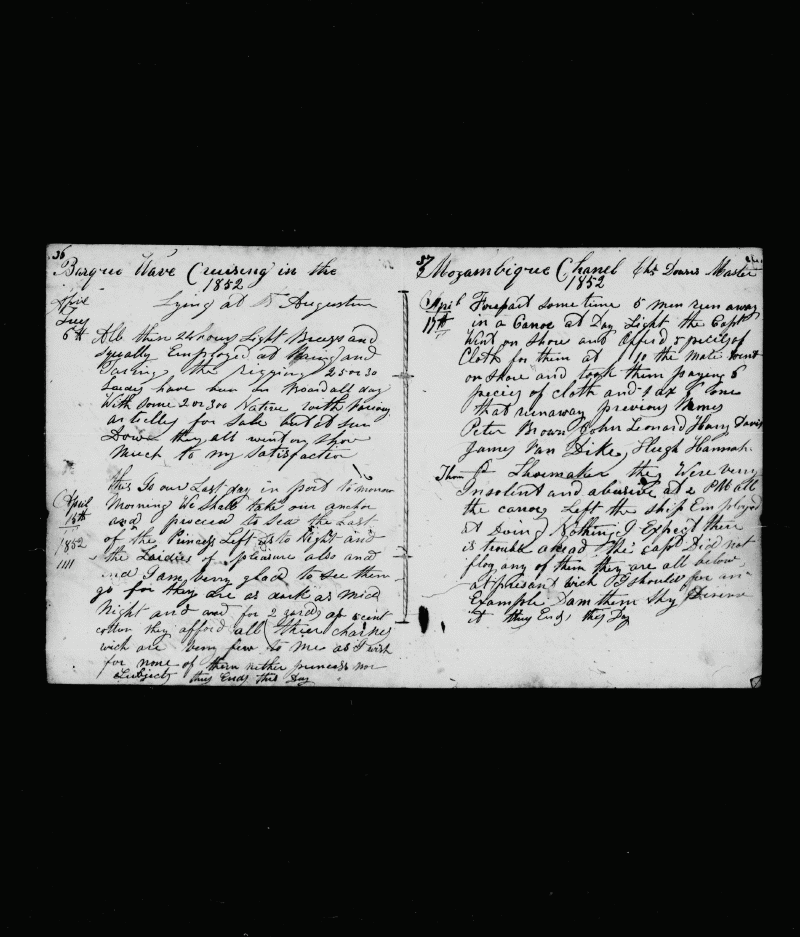 36
Barque Wave Cruising in the
1852
Lying at St Augustine
April
6th All these 24 hours Light Breezes and
Employed at and
the rigging 25 or 30
have been on Board all day
With some 2 or 300 Native with Various
articlls for Sale but at Sun
Down they all went on Shore
much to my Satisfaction
this Is our Last day in port to morrow
April
16th
1852
Morning We Shall take our anchor
and proceed to Sea the Last
of the Princess Left us to Night and
the Laidies of pleasure also and
and I am very glad to See them
go for they are as dark as mid
Night and and for 2 yards of
cotton they afford all their charmes
wich are very few to me as I wish
for none of them nether princess nor
Subjects thus Ends this Day
37
Mozambique Chanel Chs Downs Master
1852
April
17th
Forepart some time 5 men run away
in a Canoe at Day Light the Capt
Went on Shore and offerd 5 pieces of
Cloth for them at 10 the Mate went
on Shore and took them paying 6
pieces of cloth and 1 ax
that runaway previous Names
Peter Brown John Leonard Harry Davis
James Van Dike, Hugh Hannah
Thom P Shoemaker they Were very
Insolent and abusive at 2 PM all
the canoes Left the Ship Employed
at Doing Nothing I Expect their
is trouble ahead the capt Did not
flog any of them they are all below
at presant wich I Should for an
Example Dam them they Deserve
it thus Ends this Day